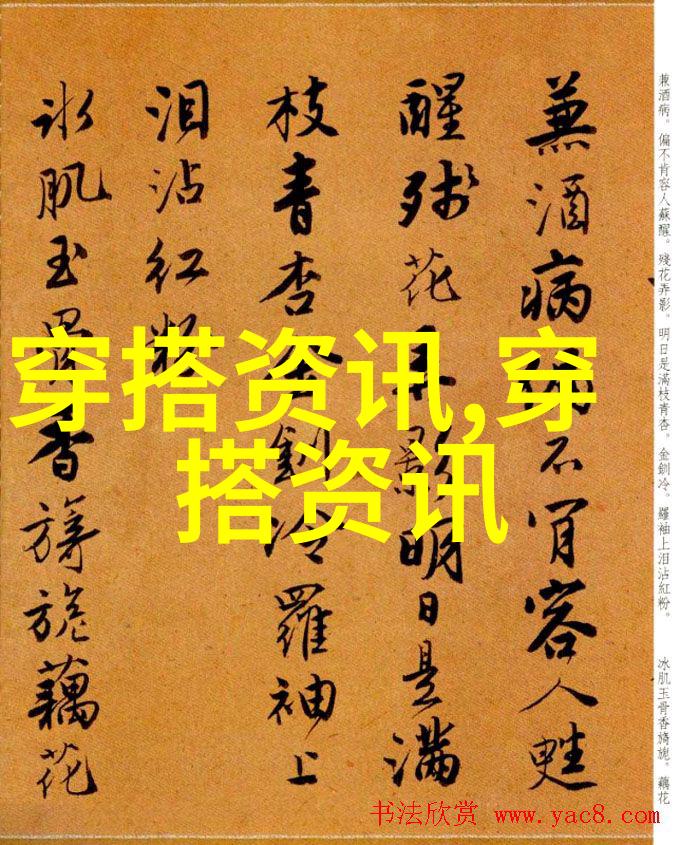 兼酒病。偏不肯容人蘇醒。殘花弄影。明日是滿枝青杏。金釧冷。羅袖上泪沾紅粉。
冰肌玉骨香旖旎。藕花
兼酒病偏不肯容人甦
醒殘花弄影明日是滿
枝青杏金釧冷羅袖上
泪沾紅粉
冰肌玉骨香旖旎藕花
穿搭资讯,穿
搭资讯
书法欣赏 www.yac8.com